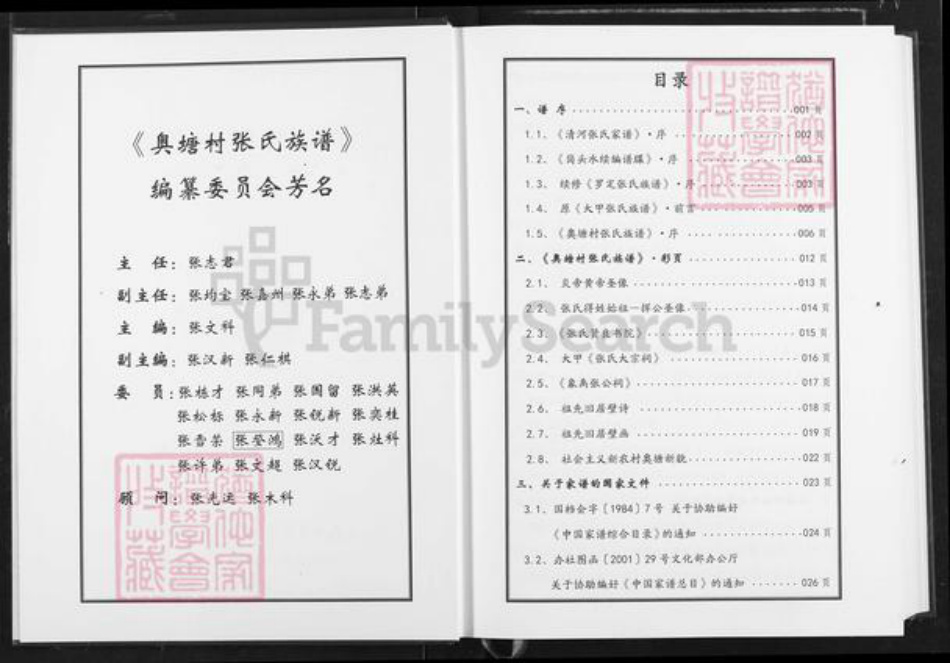 《奥塘村张氏族谱》
编纂委员会芳名
主 任：张志君
副主任：张均宝 张嘉州 张永弟 张志弟
主 编：张文科
副主编：张汉新 张仁祺
委 员：张栋才 张同弟 张国留 张洪英
张松标 张永新 张锐新 张奕桂
张杳荣 张登鸿 张沃才 张灶科
张详弟 张文超 张汉锐
顾 问：张光运 张木科
FamilySearch
目录
一、谱 序 001 页
1.1、《清河张氏家谱》·序 002 页
1.2、《筒头水续编谱牒》·序 003 页
1.3、续修《罗定张氏族谱》·序 003 页
1.4、原《大甲张氏族谱》·前言 005 页
1.5、《奥塘村张氏族谱》·序 006 页
二、《奥塘村张氏族谱》·彩页 012 页
2.1、炎帝黄帝圣像 013 页
2.2、张氏得姓始祖—挥公圣像 014 页
2.3、《张氏贤良书院》 015 页
2.4、大甲《张氏大宗祠》 016 页
2.5、《象离张公祠》 017 页
2.6、祖先旧居壁诗 018 页
2.7、祖先旧居壁画 019 页
2.8、社会主义新农村奥塘新貌 022 页
三、关于家谱的国家文件 023 页
3.1、国档会字〔1984〕7 号 关于协助编好
《中国家谱综合目录》的通知 024 页
3.2、办社图函〔2001〕29 号文化部办公厅
关于协助编好《中国家谱总目》的通知 026 页